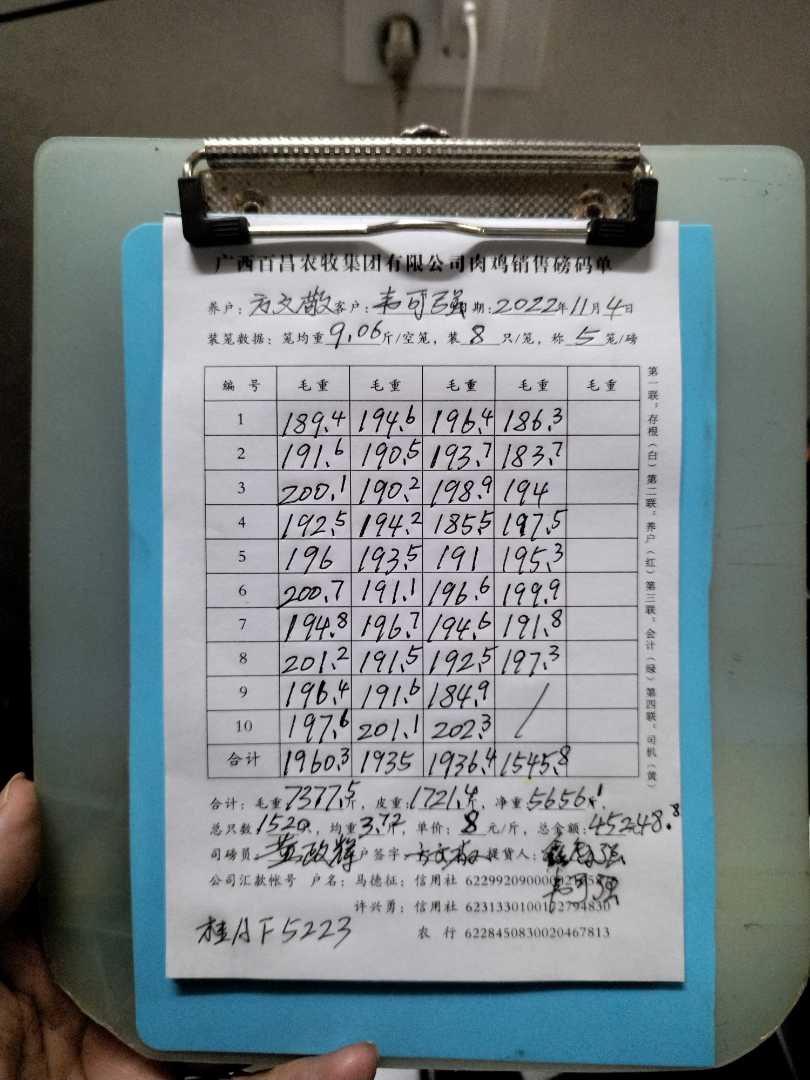 广西百昌农牧集团有限公司肉鸡销售磅码单
养户：方文敬 客户：韦可强 日期：2022年11月4日
装笼数据：笼均重9.06斤/空笼，装8只/笼，称5笼/磅
编号 毛重 毛重 毛重 毛重 毛重
1 189.4 194.6 196.4 186.3
2 191.6 190.5 193.7 183.7
3 200.1 190.2 198.9 194
4 192.5 194.2 185.5 197.5
5 196 193.5 191 195.3
6 200.7 191.1 196.6 199.9
7 194.8 196.7 194.6 191.8
8 201.2 191.5 192.5 197.3
9 196.4 191.6 184.9 /
10 197.6 201.1 202.3 /
合计 1960.3 1935 1936.4 1545.8
合计：毛重7377.5斤，皮重：1721.4斤，净重5656.1
总只数1520，均重3.72斤，单价：8元/斤，总金额：45248.8
司磅员 黄政辉 户签字 方文敬 提货人：
韦可强
公司汇款帐号 户名：马德征：信用社
许兴勇：信用社
农行 6228450830020467813
桂AF5223
第一联：存根（白）第二联：养户（红）第三联：会计（绿）第四联：司机（黄）